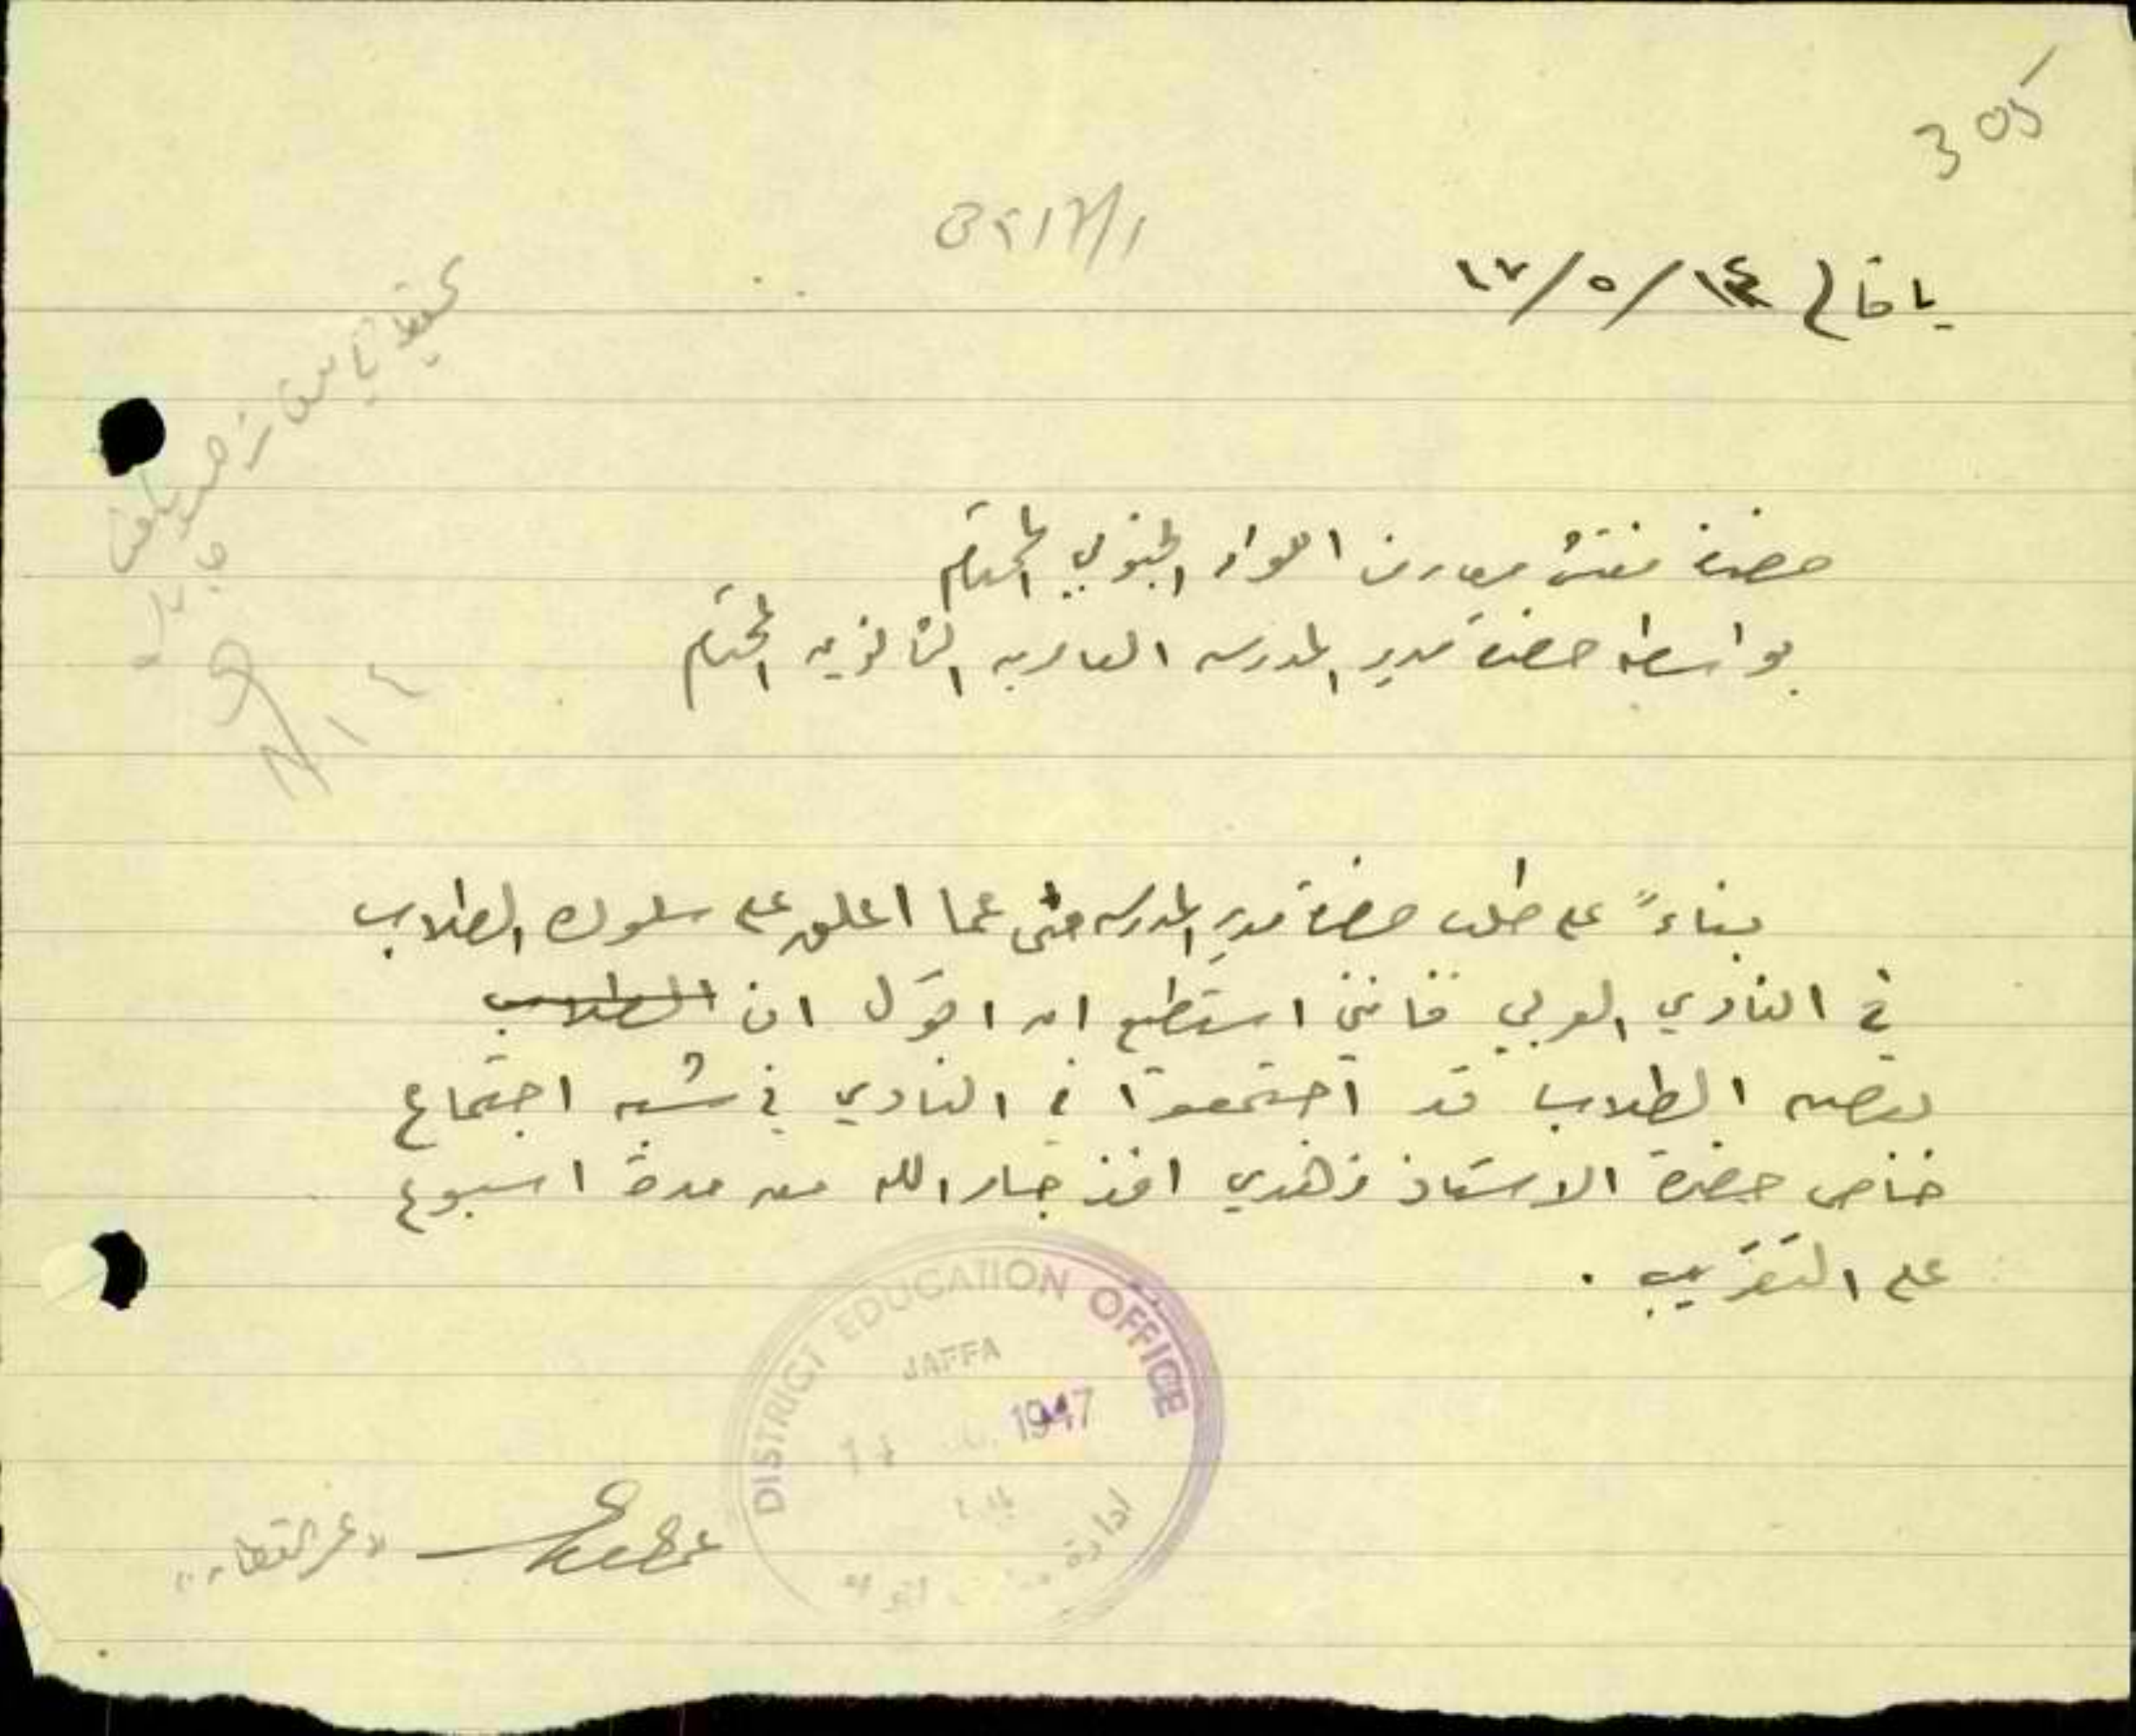 305
يافا في ١٤/٥/٤٧
حضرة مفتش معارف اللواء الجنوبي المحترم
بواسطة حضرة مدير المدرسه العامريه الثانويه المحترم
بناءً على طلب حضرة مدير المدرسه مني عما اعلق على سلوك الطلاب
في النادي العربي فانني استطيع ان اقول ان الطلاب
بعض الطلاب قد اجتمعوا في النادي في شبه اجتماع
خاص حضرة الاستاذ زهدي افندي جار الله من مدة اسبوع
على التقريب .
DISTRICT EDUCATION OFFICE
JAFFA
14 1947
يافا
ادارة
"عمر القطان"